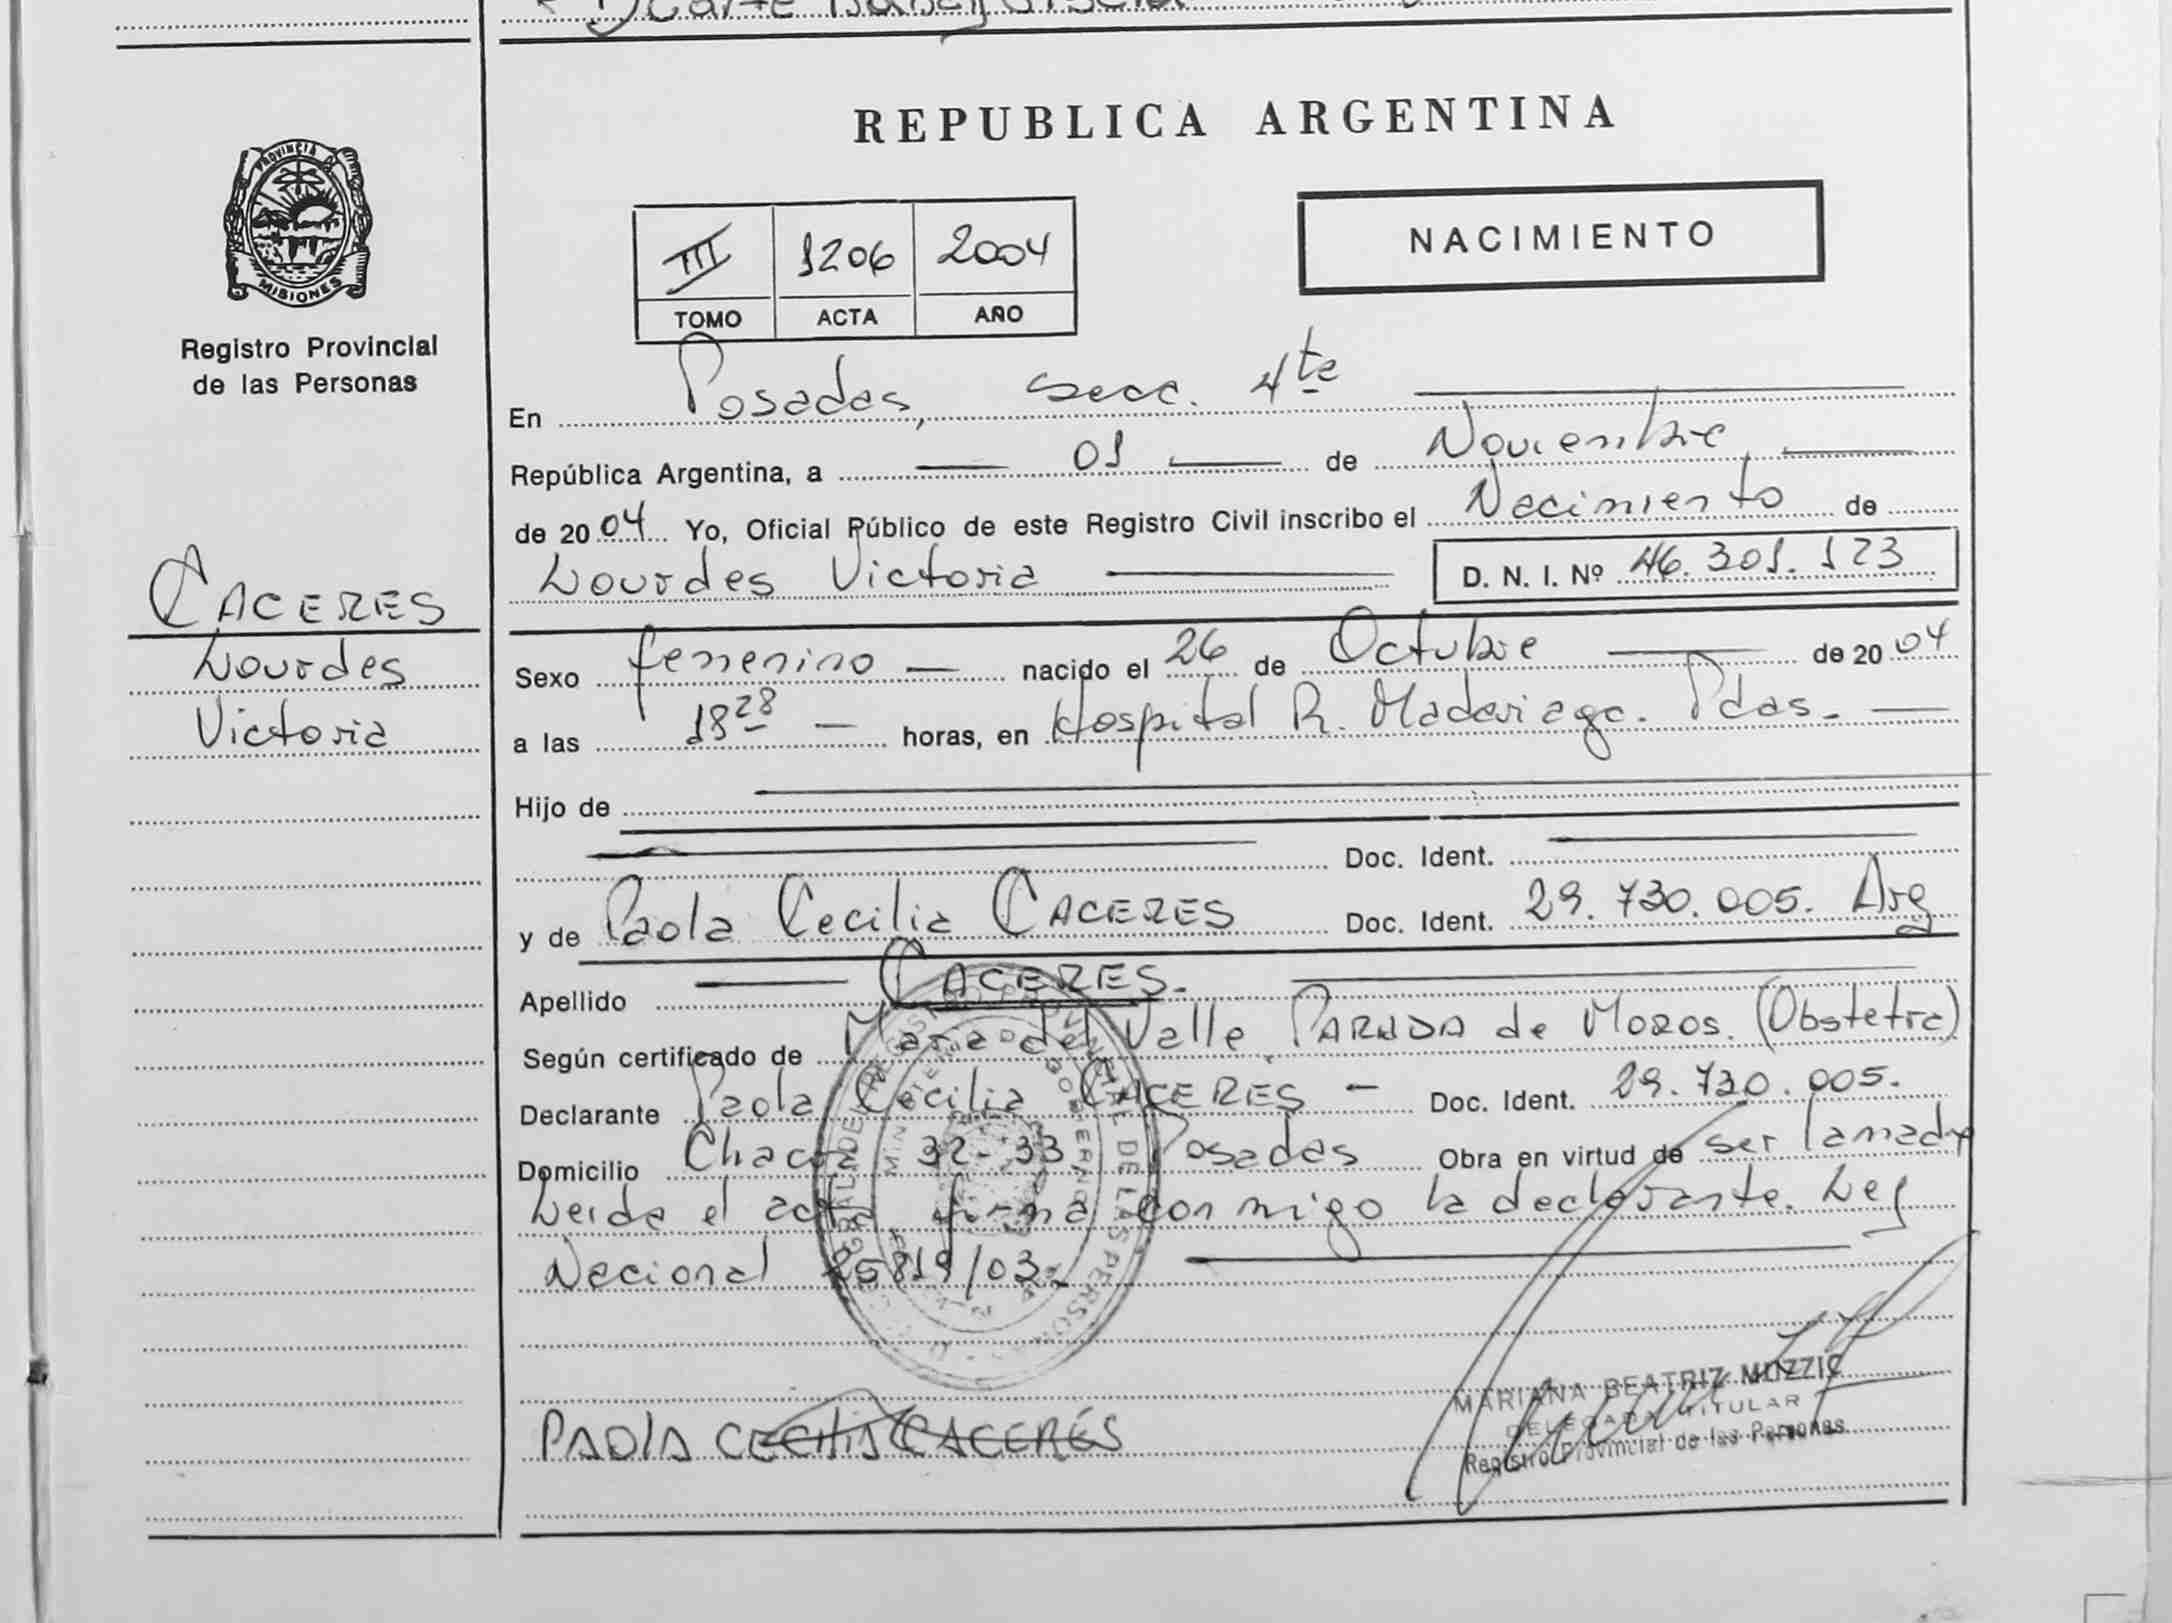 Duarte
REPUBLICA ARGENTINA
PROVINCIA DE
MISIONES
Registro Provincial
de las Personas
III 1206 2004
TOMO ACTA AÑO
NACIMIENTO
En Posadas, secc. 4ta
República Argentina, a 01 de Noviembre
de 2004 Yo, Oficial Público de este Registro Civil inscribo el Nacimiento de
Lourdes Victoria D. N. I. Nº 46.301.123
CACERES
Lourdes
Victoria
Sexo femenino nacido el 26 de Octubre de 2004
a las 18 28 horas, en Hospital R. Madariaga. Pdas.
Hijo de
Doc. Ident.
y de Paola Cecilia CACERES Doc. Ident. 29.730.005. Arg
Apellido CACERES.
Según certificado de Maria del Valle PARADA de MOROS. (Obstetra)
Declarante Paola Cecilia CACERES - Doc. Ident. 29.730.005.
Domicilio Chacra 32-33 Posadas Obra en virtud de ser la madre
Leida el acta firma conmigo la declarante. Ley
Nacional 25819/03.
PAOLA CECILIA CACERES
MARIANA BEATRIZ MUZZIC
DELEGADA TITULAR
Registro Provincial de las Personas